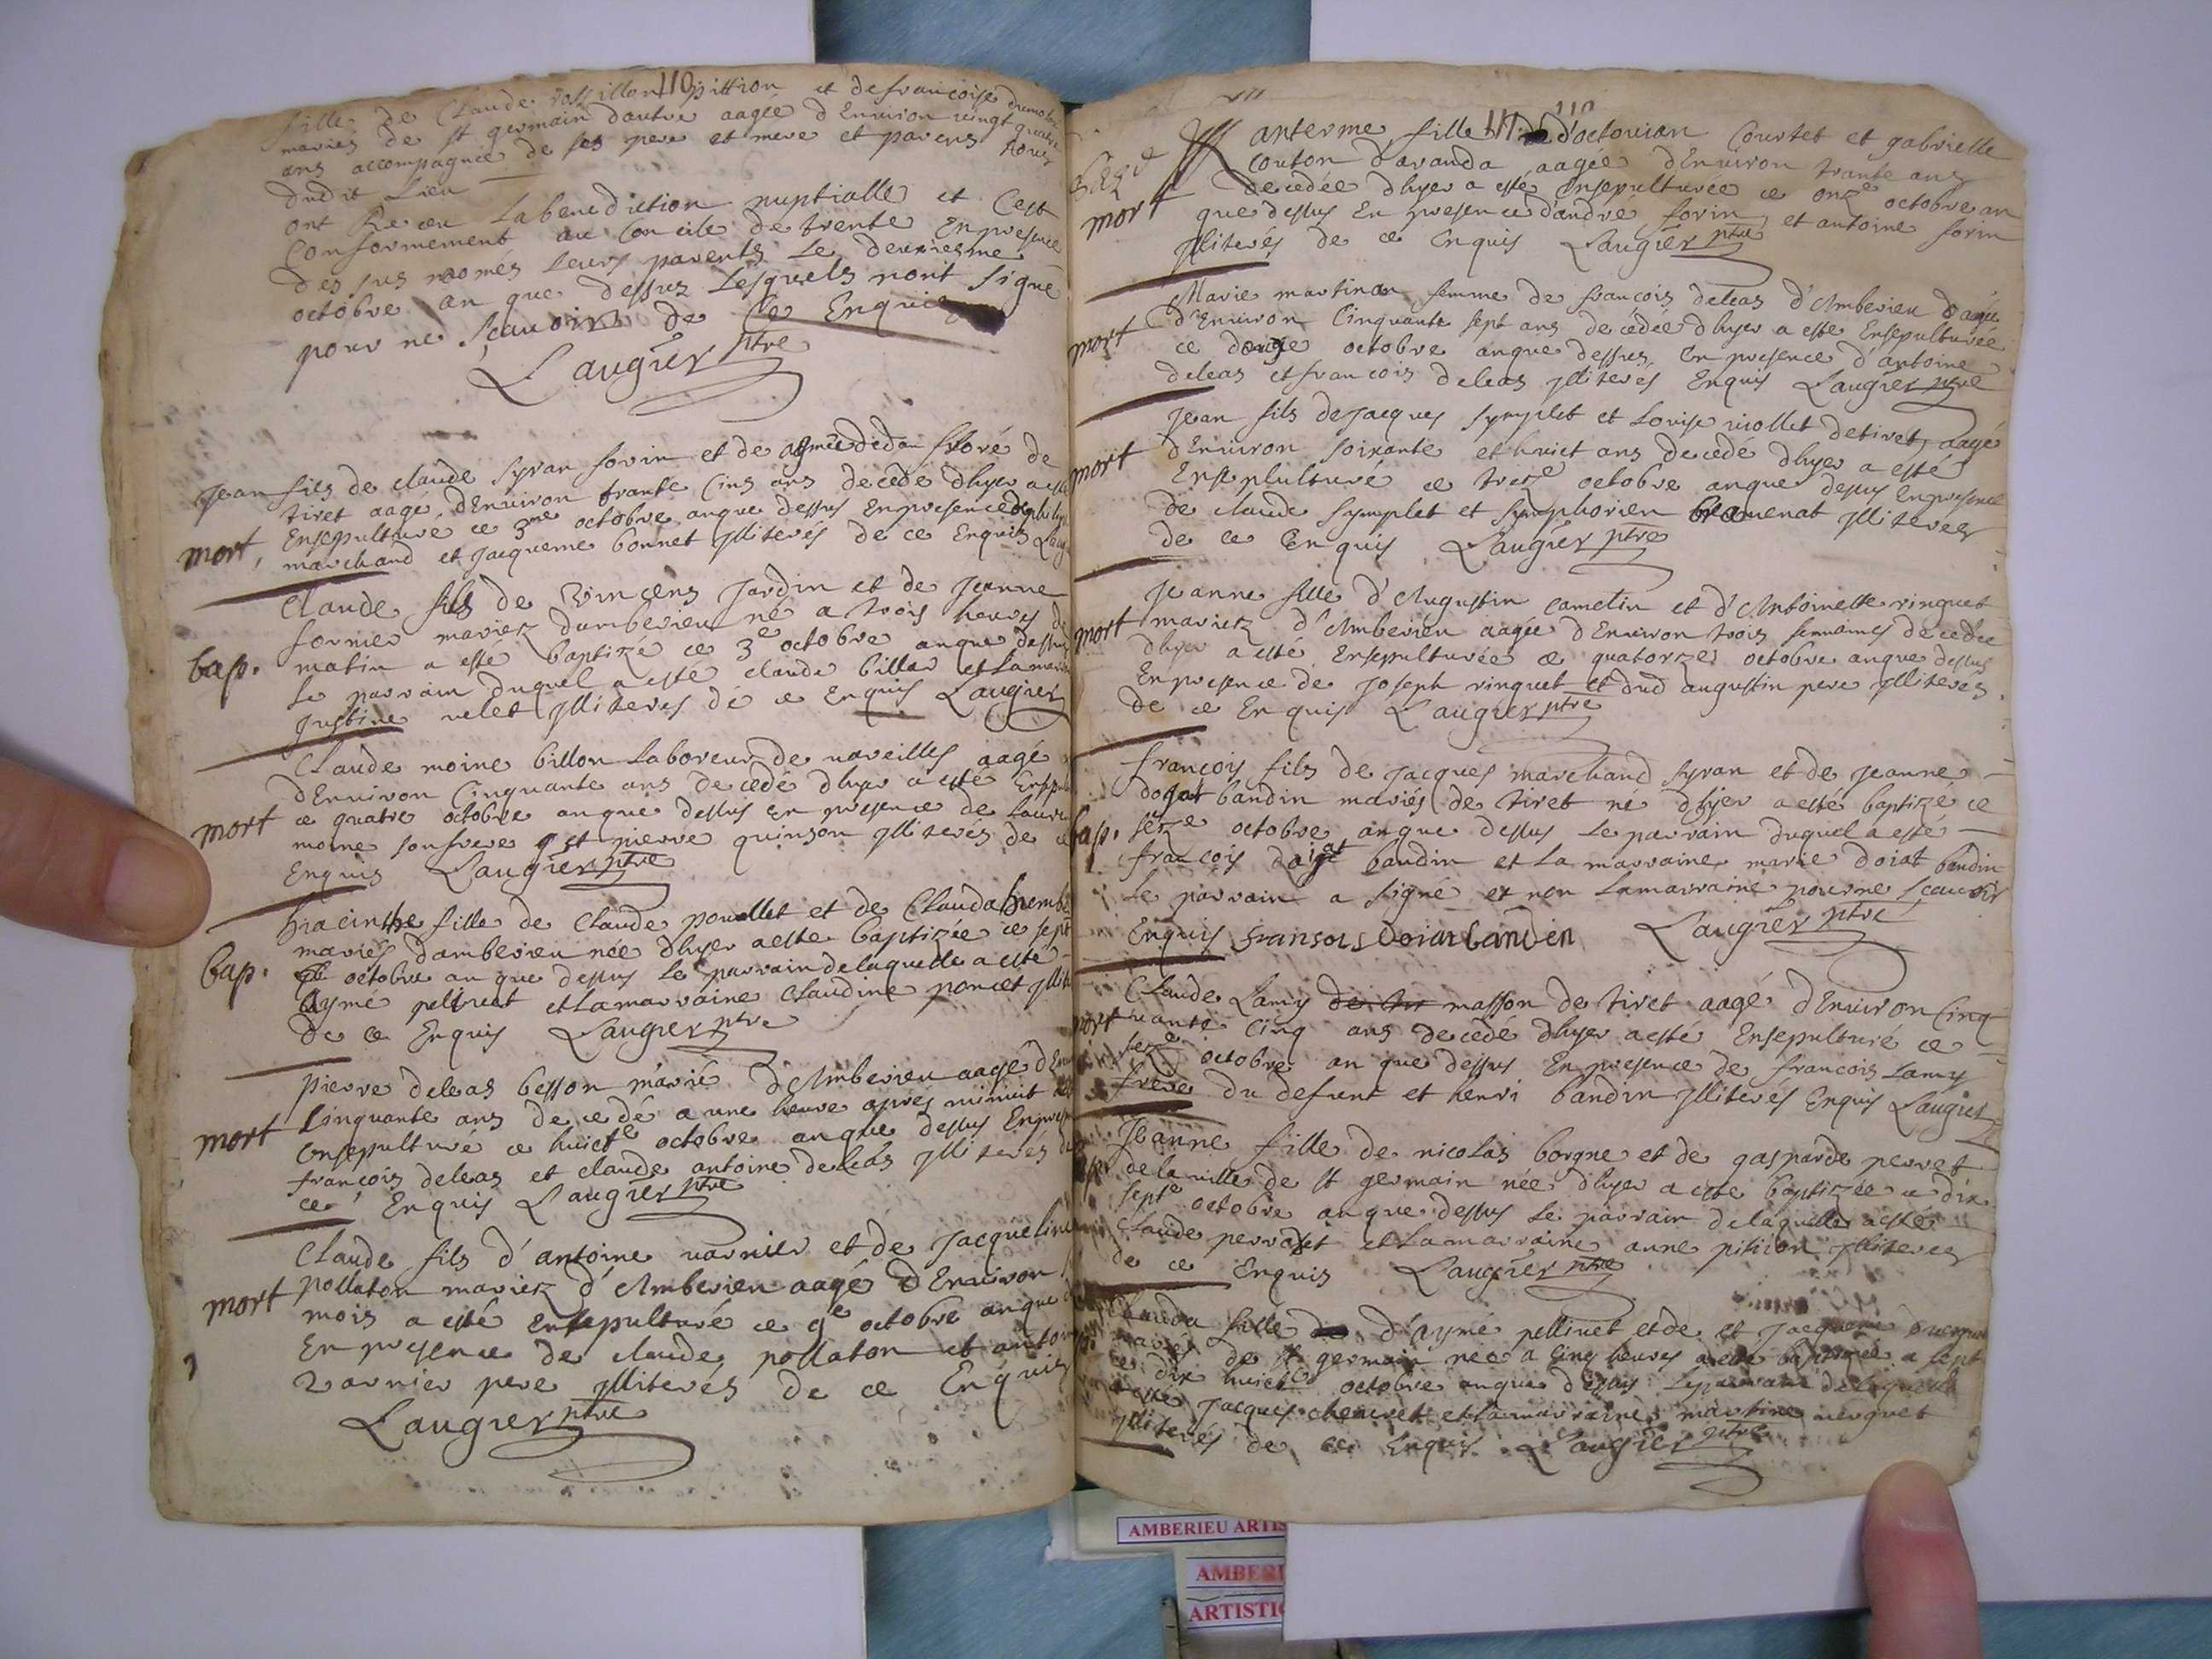 110
fille de Claude rossillon pittion et de francoise dumolin
mariés de st germain d'autre aagée d'Environ vingt quatre
ans accompagnée de ses pere et mere et parens
dudit Lieu
ont Receu La benediction nuptialle et Cest
Conformement au Concile de trente En presence
des sus només Leurs parents Le deuxiesme
octobre an que dessus Lesquels nont signé
pour ne scauoir de Ce Enquis
Laugier ptre
Jean fils de claude syvan sorin et de de
tiret aagé d'Environ trante Cinq ans decedé dhyer a esté
mort, Ensepulturé ce 3me octobre an que dessus En presence de
marchand et Jacqueme bonnet Illiterés de ce Enquis
Claude fils de Vincens Jardin et de Jeanne
fornier mariez damberieu né a trois heures de
bap. matin a esté baptizé ce 3e octobre an que dessus
Le parrain duquel a esté claude billar et La marraine
Justine velet Illiterés de ce Enquis Laugier
Claude moine billon Laboreur de vareilles aagé
d'Environ Cinquante ans decedé dhyer a esté
mort ce quatre octobre an que dessus en presence de
moine son frere et pierre quinson Illiterés de ce
Enquis Laugier ptre
hiacinthe fille de Claude pouollet et de Clauda
mariés damberieu née dhyer a esté baptizée ce sept
bap. octobre an que dessus Le parrain de laquelle a esté
Aymé pelluet et La marraine Claudine poncet
de ce Enquis Laugier ptre
Pierre deleas besson marié d'Amberieu aagé
Cinquante ans decedé a une heure apres minuit
mort Ensepulturé ce huicte octobre an que dessus
francois deleas et claude antoine deleas Illiterés de
ce Enquis Laugier ptre
Claude fils d'antoine varnier et de Jacqueline
pollaton mariez d'Amberieu aagé d'Environ
mort mois a esté Ensepulturé ce 9e octobre an que
En presence de claude pollaton et
varnier pere Illiterés de ce Enquis
Laugier ptre
110
anterme fille d'octouian Courtet et gabrielle
couton d'aranda aagée d'Environ trante ans
decedée dhyer a esté Ensepulturée ce onze octobre an
mort que dessus En presence d'andré sorin et antoine sorin
Illiterés de ce Enquis Laugier ptre
Marie martinan femme de francois deleas d'Amberieu aagée
d'Environ Cinquante sept ans decedée dhyer a esté Ensepulturée
mort ce douze octobre an que dessus En presence d'antoine
deleas et francois deleas Illiterés Enquis Laugier ptre
Jean fils de Jacques symplet et Louise viollet de tiret aagé
d'Environ soixante et huict ans decedé dhyer a esté
mort Ensepulturé ce treze octobre an que dessus En presence
de claude symplet et symphorien Illiterés
de ce Enquis Laugier ptre
Jeanne fille d'Augustin cametin et d'Antoinette vinguet
mort mariez d'Amberieu aagée d'Environ trois semaines decedée
dhyer a esté Ensepulturée ce quatorze octobre an que dessus
En presence de Joseph vinguet et dud augustin pere Illiterés
de ce Enquis Laugier ptre
francois fils de Jacques marchand syvan et de Jeanne
doiat bandin mariés de tiret né dhyer a esté baptizé ce
bap. seze octobre an que dessus Le parrain duquel a esté
francois doiat bandin et La marraine marie doiat bandin
Le parrain a signé et non La marraine pour ne scauoir
Enquis fransois Doiat bandin Laugier ptre
Claude Lamy masson de tiret aagé d'Enuiron Cinq
mort uante Cinq ans decedé dhyer a esté Ensepulturé ce
seze octobre an que dessus En presence de francois Lamy
frere du defunt et henri bandin Illiterés Enquis Laugier
Jeanne fille de nicolas borgne et de gasparde perret
de la ville de st germain née dhyer a esté baptizée ce dix
septe octobre an que dessus Le parrain de laquelle a esté
Claude perraset et La marraine anne pition Illiterés
de ce Enquis Laugier ptre
Clauda fille d'aymé pelliuet et de et
mariés de st germain née a Cinq heures a esté baptizée a sept
ce dix huicte octobre an que dessus Le parrain de laquelle
a esté Jacques cheuret et La marraine martine
Illiterés de ce Enquis Laugier ptre
AMBERIEU ARTIS
AMBERI
ARTISTI